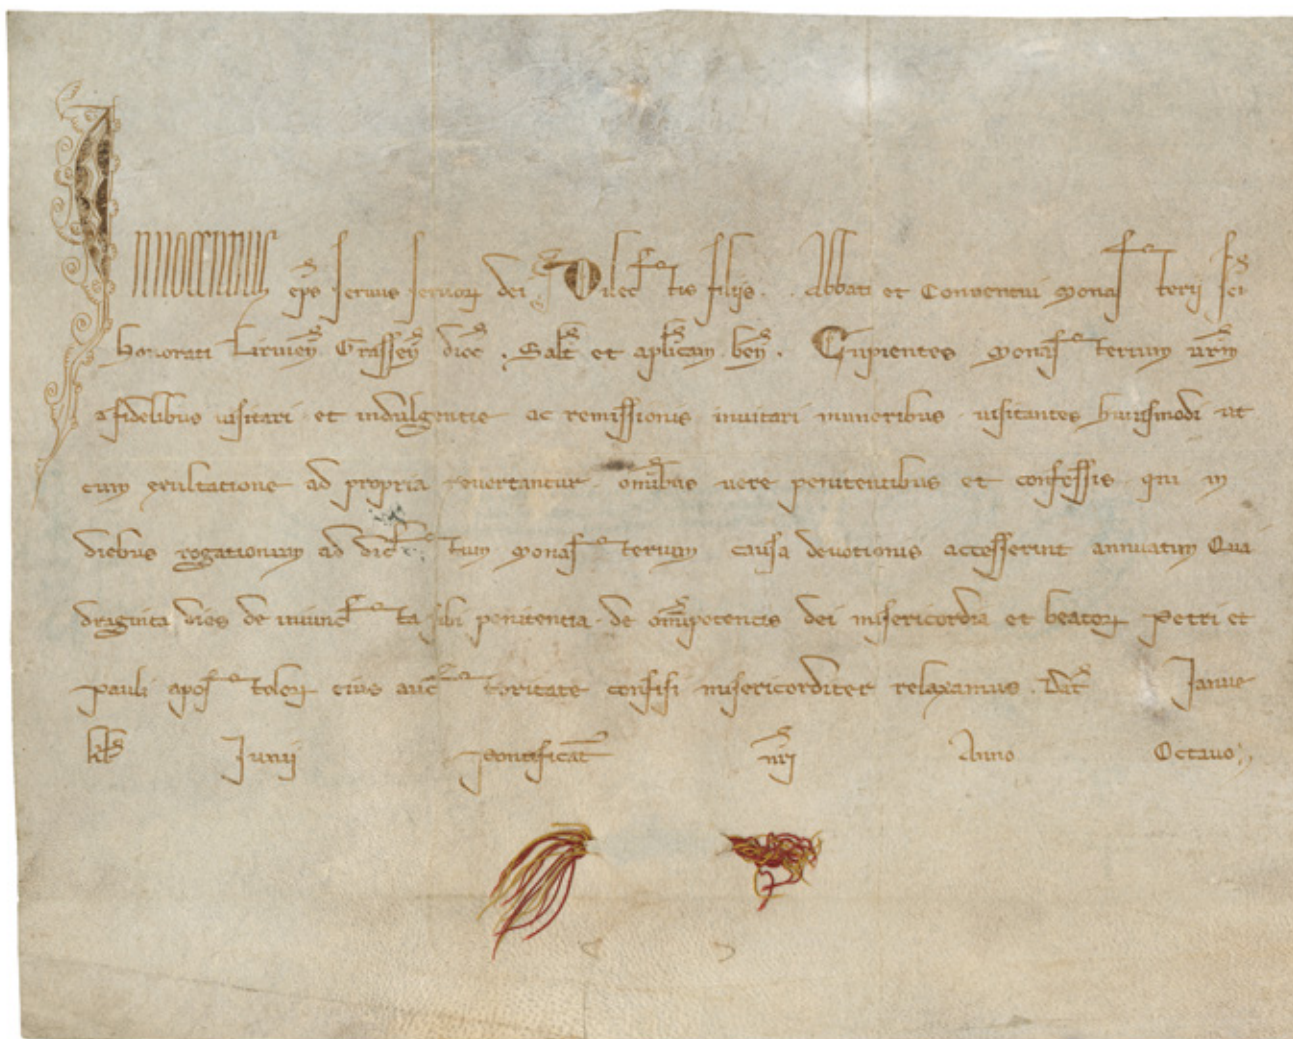 Innocentius eps servus servoꝝ dei Dilectis filijs . . Abbati et Conventui Monasterij sci
honorati Lirineñ Grasseñ dioc . Salt et aplicam beñ . Cupientes Monasterium urm
a fidelibus visitari et indulgentie ac remissionis invitari muneribus . visitantes huiusmodi ut
cum exultatione ad propria revertantur . omibus vere penitentibus et confessis qui in
diebus rogationum ad dictum Monasterium causa devotionis accesserint annuatim Qua
draginta dies de iniuncta sibi penitentia . de omipotentis dei misericordia et beatoꝝ Petri et
Pauli apostoloꝝ eius auctoritate confisi misericorditer relaxamus . Dat Janue
kl Junij Pontificat nri Anno Octavo .